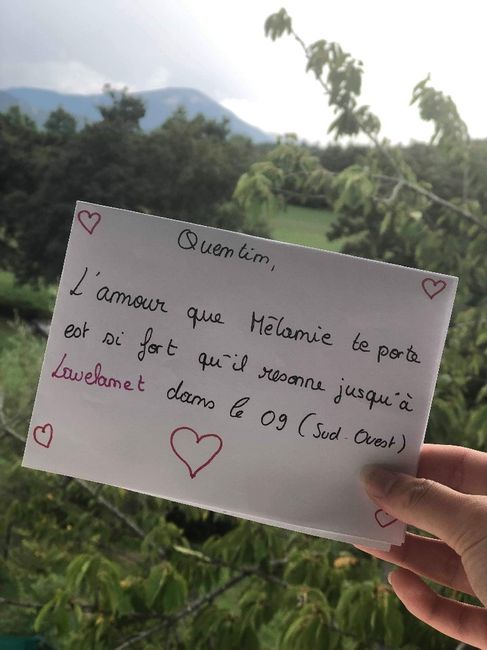 Quentin,
L'amour que Mélanie te porte
est si fort qu'il resonne jusqu'à
Lavelanet dans le 09 (Sud-Ouest)